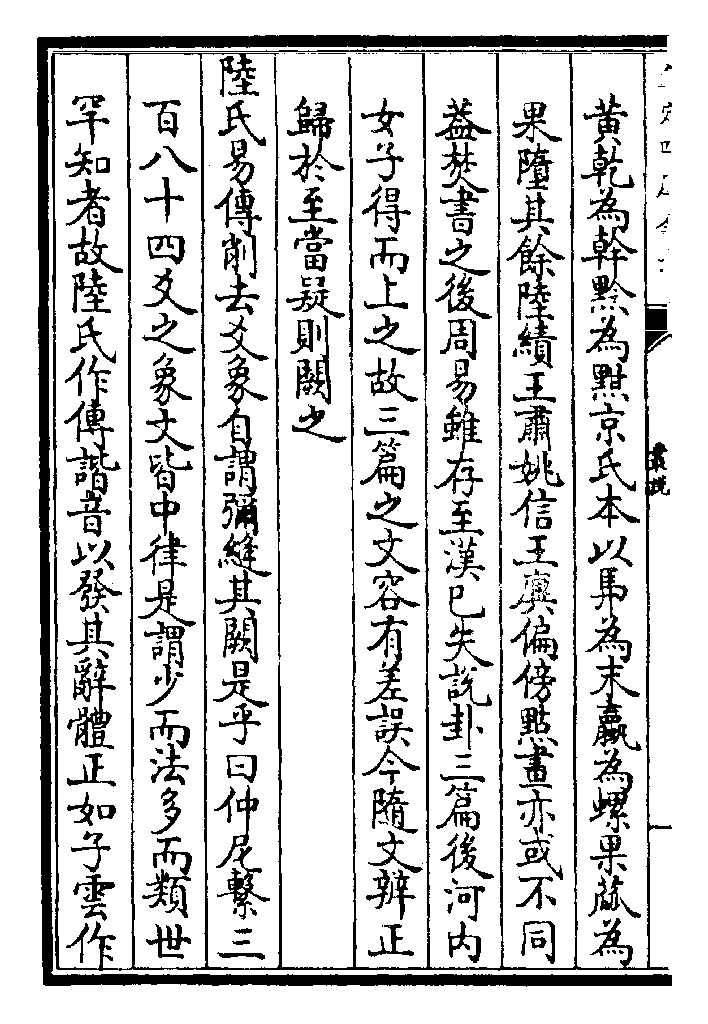 黄乾為幹黔為黚京氏本以馬為末蠃為螺果蓏為
果墮其餘陸績王肅姚信王廙偏傍點畫亦或不同
葢焚書之後周易雖存至漢已失說卦三篇後河内
女子得而上之故三篇之文容有差誤今隨文辨正
歸於至當疑則闕之
陸氏易傳削去爻象自謂彌縫其闕是乎曰仲尼繫三
百八十四爻之象文皆中律是謂少而法多而類世
罕知者故陸氏作傳諧音以發其辭體正如子雲作
叢說